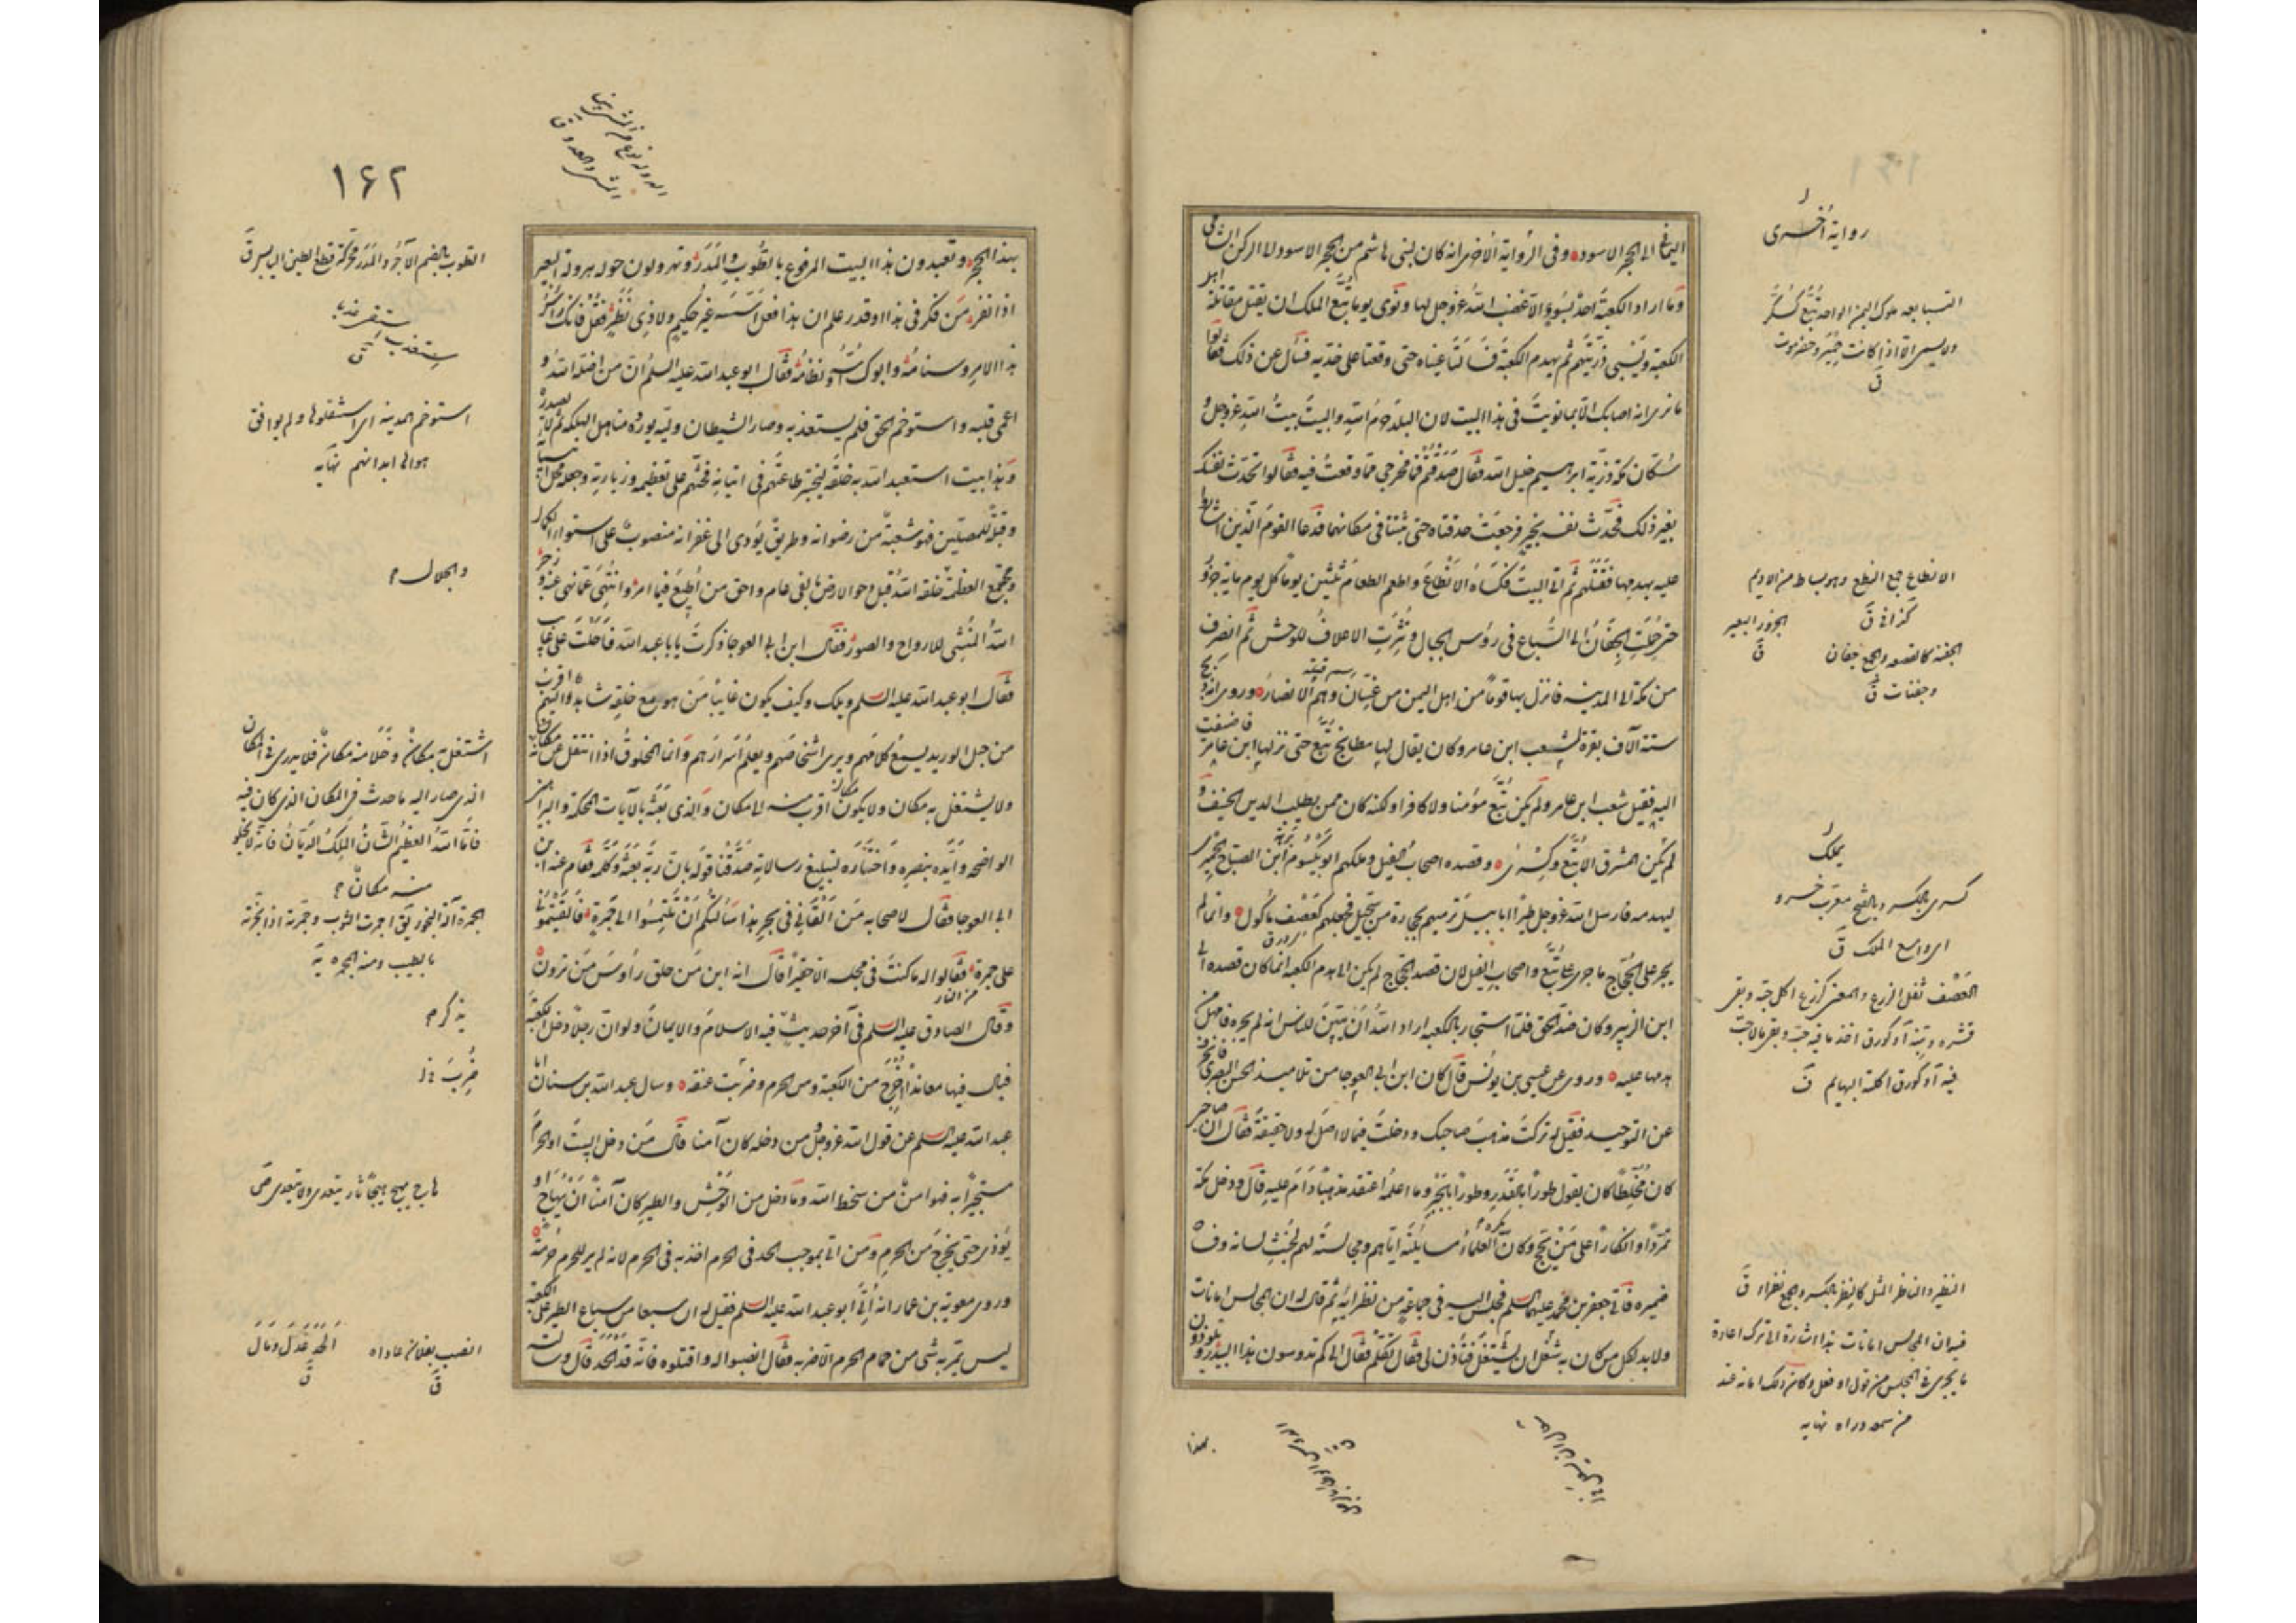 رواية أخرى
اليماني الى الحجر الاسود وفى الرواية الاخرى انه كان لبنى هاشم من الحجر الاسود الى الركن الشامى
وما اراد الكعبة احد بسوء الا غضب الله عز وجل لها ونوى يوما تبع الملك ان يقتل مقاتلة اهل
الكعبة ويسبى ذريتهم ثم يهدم الكعبة فسالت عيناه حتى وقعتا على خديه فسأل عن ذلك فقالوا
ما نرى انه اصابك الا بما نويت فى هذا البيت لان البلد حرم الله والبيت بيت الله عز وجل و
سكان مكة ذرية ابراهيم خليل الله فقال صدقتم فما مخرجى مما وقعت فيه فقالوا تحدث نفسك
بغير ذلك فحدث نفسه بخير فرجعت حدقتاه حتى ثبتتا فى مكانهما فدعا القوم الذين اشاروا
عليه بهدمها فقتلهم ثم اتى البيت فكساه الانطاع واطعم الطعام ثلثين يوما كل يوم ماية جزور
حتى حملت الجفان الى السباع فى رؤس الجبال ونثرت الاعلاف للوحش ثم انصرف
من مكة الى المدينة فانزل بها قوما من اهل اليمن من غسان وهم الانصار وروى انه ذبح
ستة آلاف بقرة بشعب ابن عامر وكان يقال لها مطابخ تبع حتى نزلها ابن عامر فاضيفت
اليه فقيل شعب ابن عامر ولم يكن تبع مؤمنا ولا كافرا ولكنه كان ممن يطلب الدين الحنيف و
لم يكن المشرق الا تبع وكسرى وقصده اصحاب الفيل وملكهم ابو يكسوم ابرهة ابن الصباح الحميرى
ليهدمه فارسل الله عز وجل طيرا ابابيل ترميهم بحجارة من سجيل فجعلهم كعصف مأكول وانما لم
يجر على الحجاج ما جرى على تبع واصحاب الفيل لان قصد الحجاج لم يكن الى هدم الكعبة انما كان قصده الى
ابن الزبير وكان ضد الحق فلما استجار بالكعبة اراد الله ان يبين للناس انه لم يجره فامهل من
هدمها عليه وروى عن عيسى بن يونس قال كان ابن ابى العوجا من تلاميذ الحسن البصرى فانحرف
عن التوحيد فقيل له تركت مذهب صاحبك ودخلت فيما لا اصل له ولا حقيقة فقال ان صاحبى
كان مخلطا كان يقول طورا بالقدر وطورا بالجبر وما اعلمه اعتقد مذهبا دام عليه قال ودخل مكة
تمردا وانكارا على من يحج وكان يكره العلماء مسايلته اياهم ومجالسته لهم لخبث لسانه وفساد
ضميره فاتى جعفر بن محمد عليهما السلم فجلس اليه فى جماعة من نظرائه ثم قال له ان المجالس امانات
ولا بد لكل من كان به سعال ان يسعل فتأذن لى فقال تكلم فقال الى كم تدوسون هذا البيدر وتلوذون
بهذا
التبابعة ملوك اليمن الواحد تبع كسكر
ولا يسمى الا اذا كانت حمير وحضرموت
ق
الانطاع جمع النطع وهو بساط من الاديم
كذا فى ق
الجزور البعير
ق
الجفنة كالقصعة والجمع جفان
وجفنات ق
بملك
كسرى بالكسر وبالفتح معرب خسرو
اى واسع الملك ق
العصف ثفل الزرع والمعنى كزرع اكل حبه وبقى
قشره وتبنه او كورق اخذ ما فيه حبه وبقى بلا حب
فيه او كورق اكلته البهايم ق
النظير والناظر المثل كالنظر بالكسر والجمع نظراء ق
فيه ان المجالس امانات هذا اشارة الى ترك اعادة
ما يجرى فى المجلس من قول او فعل وكان ذلك امانة عند
من سمعه وراه نهايه
١٦٢
الهرولة نوع من السير بين
المشى والعدو ق
بهذا الحجر وتعبدون هذا البيت المرفوع بالطوب والمدر وتهرولون حوله هرولة البعير
اذا نفر من فكر فى هذا او قدر علم ان هذا فعل اسسه غير حكيم ولا ذى نظر فقل فانك رأس
هذا الامر وسنامه وابوك اسه ونظامه فقال ابو عبد الله عليه السلم ان من اضله الله و
اعمى قلبه واستوخم الحق فلم يستعذبه وصار الشيطان وليه يورده مناهل الهلكة ثم لا يصدره
وهذا بيت استعبد الله به خلقه ليختبر طاعتهم فى اتيانه فحثهم على تعظيمه وزيارته وجعله محل انبيائه
وقبلة للمصلين فهو شعبة من رضوانه وطريق يؤدى الى غفرانه منصوب على استواء الكمال
ومجتمع العظمة خلقه الله قبل دحو الارض بالفى عام واحق من اطيع فيما امر وانتهى عما نهى عنه وزجر
الله المنشئ للارواح والصور فقال ابن ابى العوجا ذكرت يا با عبد الله فاحلت على غايب
فقال ابو عبد الله عليه السلم ويلك وكيف يكون غايبا من هو مع خلقه شاهد واليهم اقرب
من حبل الوريد يسمع كلامهم ويرى اشخاصهم ويعلم اسرارهم وانما المخلوق اذا انتقل عن مكان
ولا يشتغل به مكان ولا يكون الى مكان اقرب منه الى مكان والذى بعثه بالآيات المحكمة والبراهين
الواضحة وايده بنصره واختاره لتبليغ رسالاته صدقنا قوله بان ربه بعثه وكلمه فقام عنه ابن
ابى العوجا فقال لاصحابه من القانى فى بحر هذا سألتكم ان تلتمسوا الى خمرة فالقيتمونى
على جمرة فقالوا له ما كنت فى مجلسه الا حقيرا قال انه ابن من حلق رؤس من ترون
وقال الصادق عليه السلم فى آخر حديث يذكر فيه الاسلام والايمان ولو ان رجلا دخل الكعبة
فبال فيها معاندا اخرج من الكعبة ومن الحرم وضربت عنقه وسال عبد الله بن سنان ابا
عبد الله عليه السلم عن قول الله عز وجل ومن دخله كان آمنا قال من دخل البيت او الحرم
مستجيرا به فهو امن من سخط الله وما دخل من الوحش والطير كان آمنا ان يهاج او
يؤذى حتى يخرج من الحرم ومن اتى بموجب الحد فى الحرم اخذ به فى الحرم لانه لم ير للحرم حرمة
وروى معوية بن عمار انه اتى ابو عبد الله عليه السلم فقيل له ان سبعا من سباع الطير على الكعبة
ليس يمر به شى من حمام الحرم الا ضربه فقال انصبوا له واقتلوه فانه قد الحد قال وسالته
الطوب بالضم الآجر والمدر محركة قطع الطين اليابس ق
يستعذب
ق
استوخم المدينة اى استثقلوها ولم يوافق
هوائها ابدانهم نهايه
والجلال
اشتغل به مكان وخلا منه مكان فلا يدرى فى المكان
الذى صار اليه ما حدث فى المكان الذى كان فيه
فاما الله العظيم الشان الملك الديان فانه لا يخلو
منه مكان
يذكر
ضرب خ ل
هاج يهيج هيجا ثار يتعدى ولا يتعدى ص
النصب بفلان عاداه
ق
الحد عدل ومال
ق